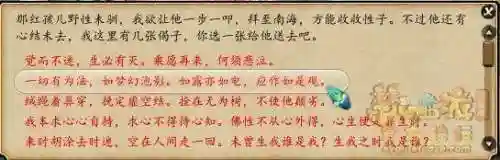 那红孩儿野性未驯，我欲让他一步一叩，拜至南海，方能收收性子。不过他还有
心结未去，我这里有几张偈子，你选一张给他送去吧。
觉而不迷，生必有灭。乘愿再来，何须悲泣。
一切有为法，如梦幻泡影。如露亦如电，应作如是观。
绒绳着鼻穿，挽定虚空结。拴在无为树，不使他颠劣。
我本求心心自持，求心不得待心知。佛性不从心外得，心生便是罪生时。
来时胡涂去时迷，空在人间走一回。未曾生我谁是我？生我之时我是谁？